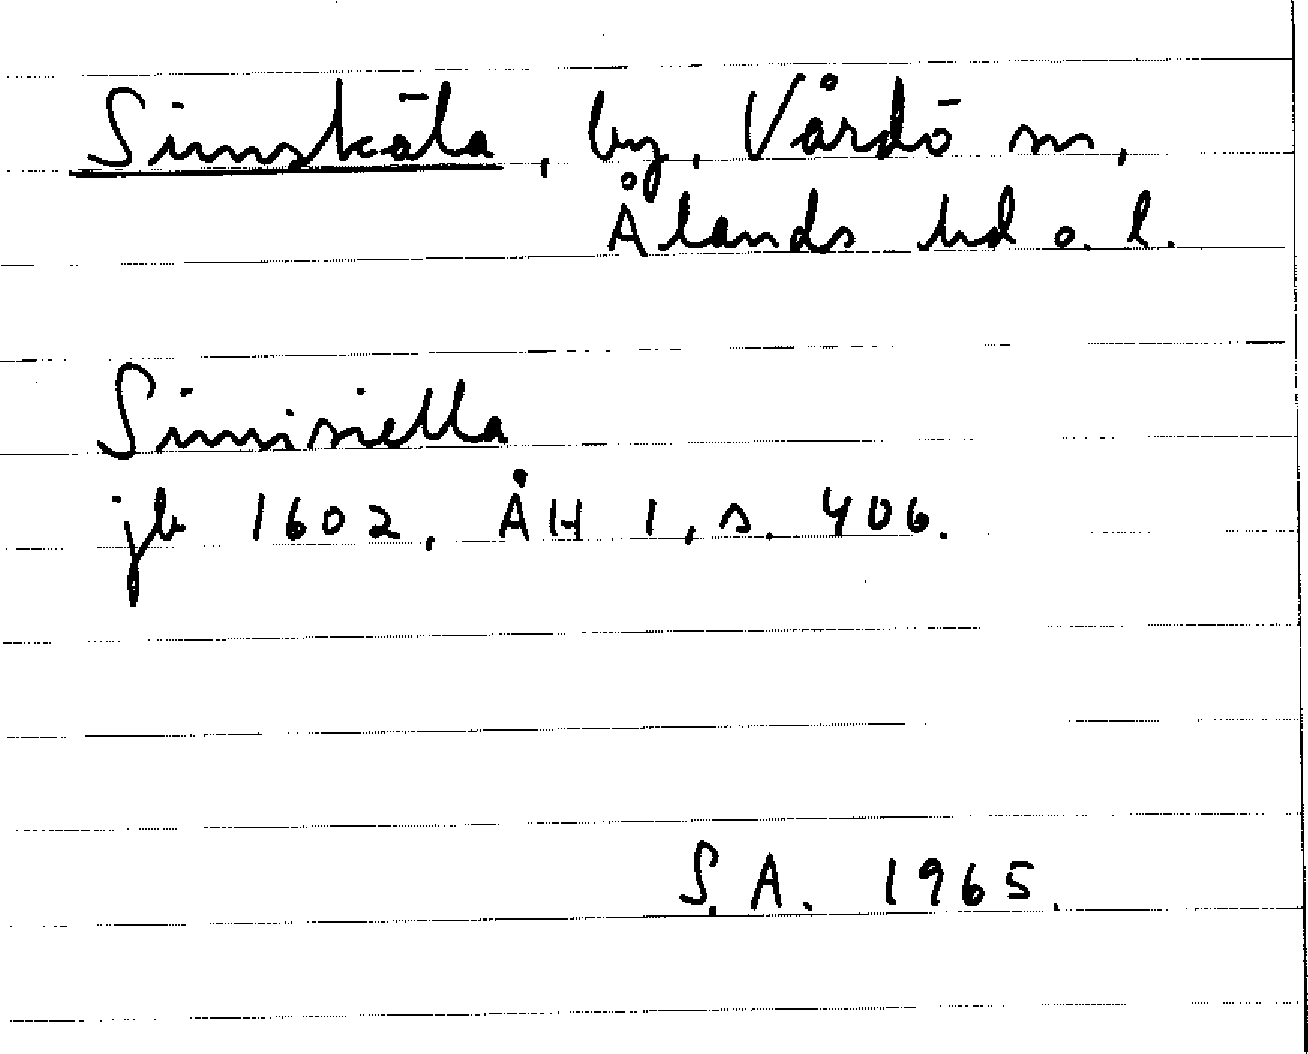 Simskäla, by, Vårdö sn,
Ålands hd o. l.
Simisiella
jb 1602, ÅH 1, s. 406.
S.A. 1965.